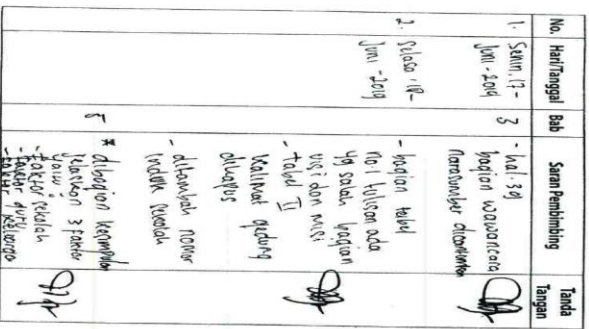 No. Hari/Tanggal Bab Saran Pembimbing Tanda Tangan
1. Senin, 17-
Juni-2019
3
- hal 39
bagian wawancara
narasumber dicantumkan
2. Selasa, 18-
Juni-2019
- bagian tabel
no.1 tulisan ada
yg salah bagian
visi dan misi
- tabel II
kalimat gedung
dihapus
- ditambah nomor
indek sekolah
5
* dibagian kesimpulan
jelaskan 3 faktor
yaitu:
- faktor sekolah
- faktor guru
- faktor keluarga